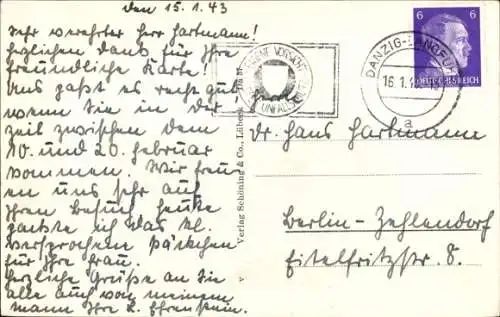 den 15.1.43
Sehr verehrter Herr Hartmann!
herzlichen Dank für Ihre
freundliche Karte!
Uns paßt es recht gut
wenn Sie in der
Zeit zwischen dem
10. und 20. Februar
kommen. Wir freu-
en uns sehr auf
Ihren Besuch heute
packte ich das kl.
versprochene Päckchen
für Ihre Frau.
herzliche Grüße an Sie
alle auch von meinem
Mann Ihre
Verlag Schöning & Co., Lübeck
EIGENE VORSICHT
UNFALL
DANZIG-LANGFUHR
16.1.
a
6 6
DEUTSCHES REICH
Dr. Hans Hartmann
Berlin-Zehlendorf
Eitelfritzstr. 8.